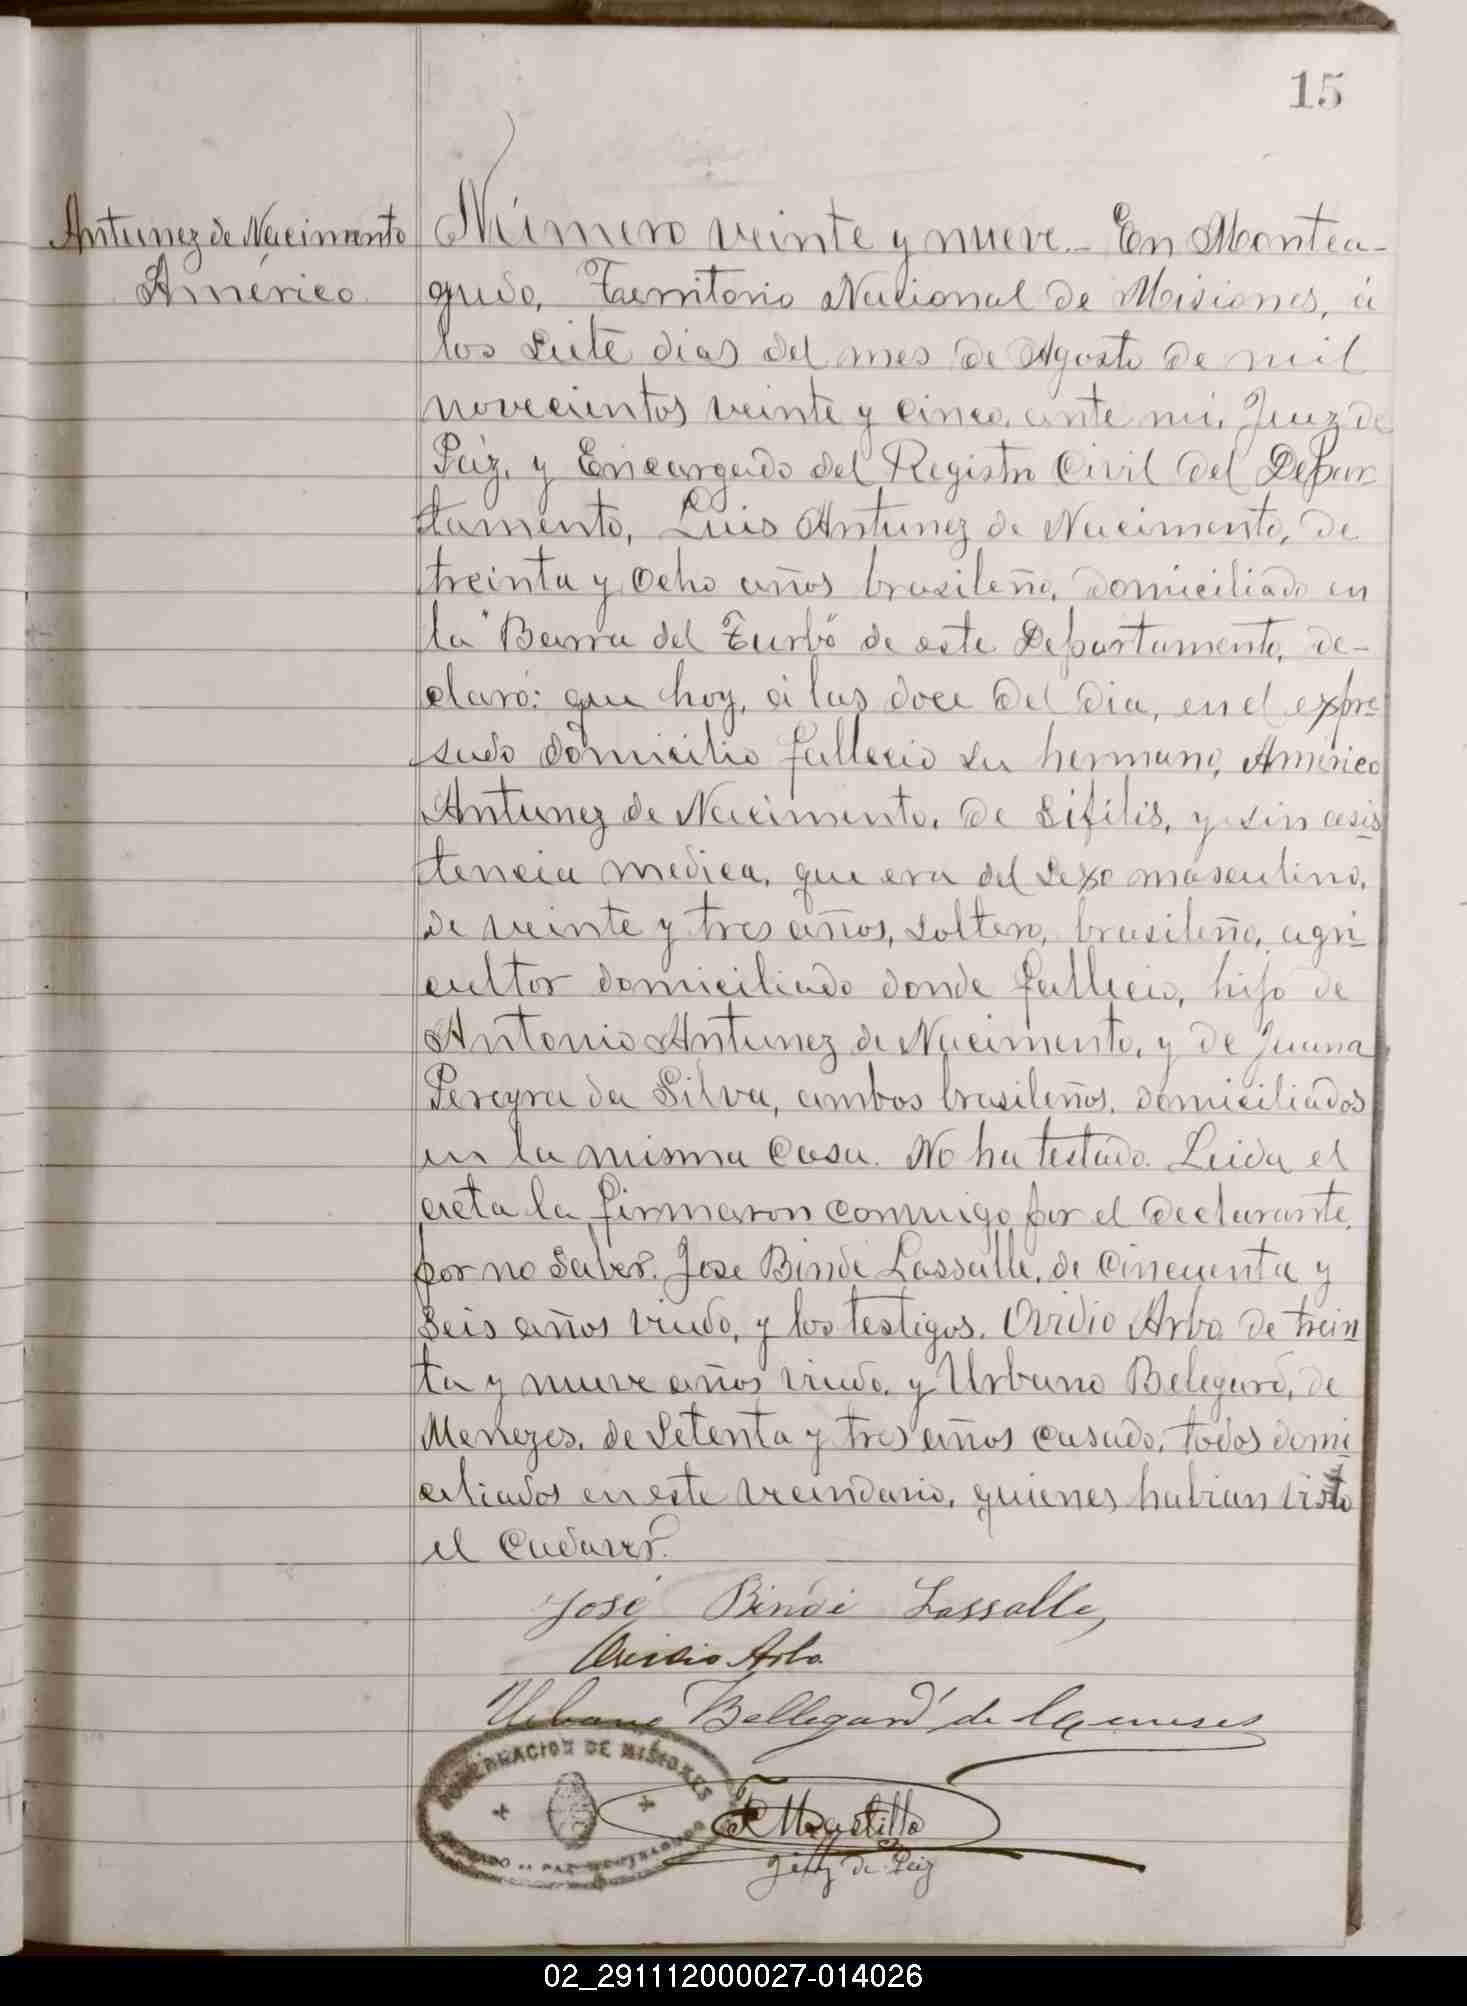 15
Antunez de Nacimento
Américo
Número veinte y nueve.- En Montea-
gudo, Territorio Nacional de Misiones, á
los siete dias del mes de Agosto de mil
novecientos veinte y cinco, ante mi, Juez de
Páz, y Encargado del Registro Civil del Depar
tamento, Luis Antunez de Nacimento, de
treinta y ocho años brasileño, domiciliado en
la "Barra del Turbo" de este Departamento, de-
claró: que hoy, á las doce del dia, en el expre
sado domicilio fallecio su hermano, Américo
Antunez de Nacimento, de sifilis, y sin asis
tencia medica, que era del sexo masculino,
de veinte y tres años, soltero, brasileño, agri
cultor domiciliado donde fallecio, hijo de
Antonio Antunez de Nacimento, y de Juana
Pereyra da Silva, ambos brasileños, domiciliados
en la misma casa. No ha testado. Leida el
acta la firmaron conmigo por el declarante,
por no saber. Jose Bindé Lassalle, de cincuenta y
seis años viudo, y los testigos. Ovidio Arbo de trein
ta y nueve años viudo, y Urbano Belegard, de
Menezes, de setenta y tres años casado, todos domi
ciliados en este vecindario, quienes habian visto
el cadaver.
José Bindé Lassalle,
Ovidio Arbo
Urbano Bellegard de
GOBERNACION DE MISIONES
Juez de Paz
02_291112000027-014026